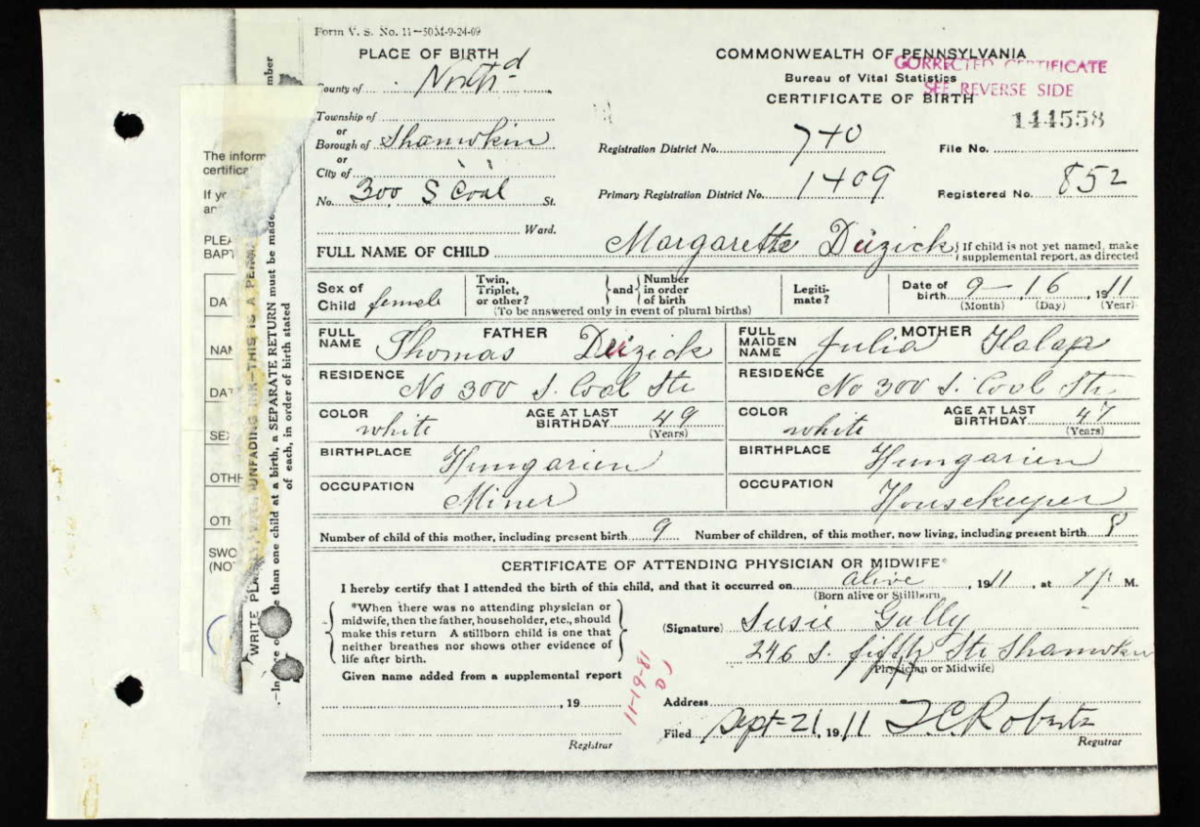 Form V. S. No. 11—50M-9-24-09
PLACE OF BIRTH
County of North'd
Township of
or
Borough of Shamokin
or
City of " "
No. 300 S Coal St.
Ward.
COMMONWEALTH OF PENNSYLVANIA
Bureau of Vital Statistics
CERTIFICATE OF BIRTH
CORRECTED CERTIFICATE
SEE REVERSE SIDE
144558
Registration District No. 740 File No.
Primary Registration District No. 1409 Registered No. 852
FULL NAME OF CHILD Margarette Duzick { If child is not yet named, make
supplemental report, as directed
Sex of Child female
Twin, Triplet, or other? } and { Number in order of birth
(To be answered only in event of plural births)
Legiti-mate?
Date of birth 9 - 16, 1911
(Month) (Day) (Year)
FATHER
FULL NAME Thomas Duzick
MOTHER
FULL MAIDEN NAME Julia Halap
RESIDENCE No 300 S. Coal Str
RESIDENCE No 300 S. Coal Str
COLOR white AGE AT LAST BIRTHDAY 49 (Years)
COLOR white AGE AT LAST BIRTHDAY 47 (Years)
BIRTHPLACE Hungarien
BIRTHPLACE Hungarien
OCCUPATION Miner
OCCUPATION Housekeeper
Number of child of this mother, including present birth 9 Number of children, of this mother, now living, including present birth 8
CERTIFICATE OF ATTENDING PHYSICIAN OR MIDWIFE*
I hereby certify that I attended the birth of this child, and that it occurred on alive, 1911, at 7 P M.
(Born alive or Stillborn
*When there was no attending physician or
midwife, then the father, householder, etc., should
make this return. A stillborn child is one that
neither breathes nor shows other evidence of
life after birth.
(Signature) Susie Gally
246 S. fifth Str Shamokin
(Physician or Midwife)
Given name added from a supplemental report
, 19
Registrar
11-19-81
DJ
Address
Filed Sept-21, 1911 T. C. Roberts
Registrar
The inform
certifica
If yo
an
PLEA
BAPT
DA
NAM
DAT
SEX
OTHE
OTH
SWO
(NOT
WRITE PLA UNFADING INK—THIS IS A PERM
than one child at a birth, a SEPARATE RETURN must be made
of each, in order of birth stated